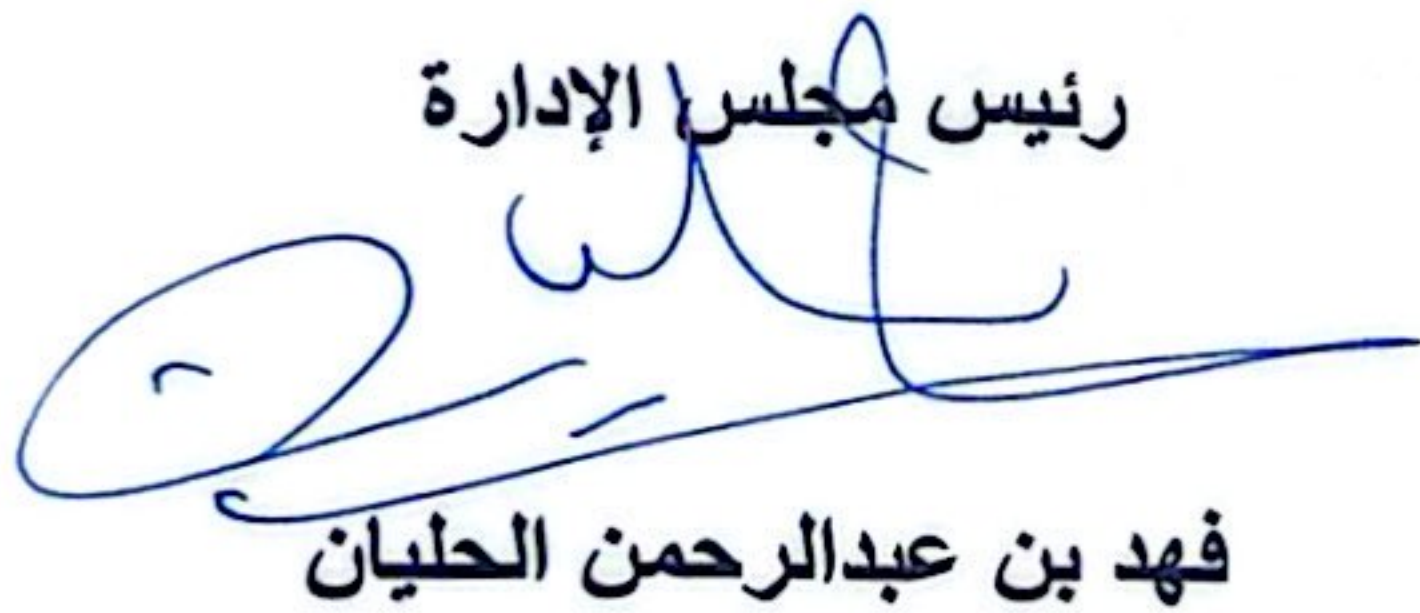 رئيس مجلس الإدارة
فهد بن عبدالرحمن الحليان